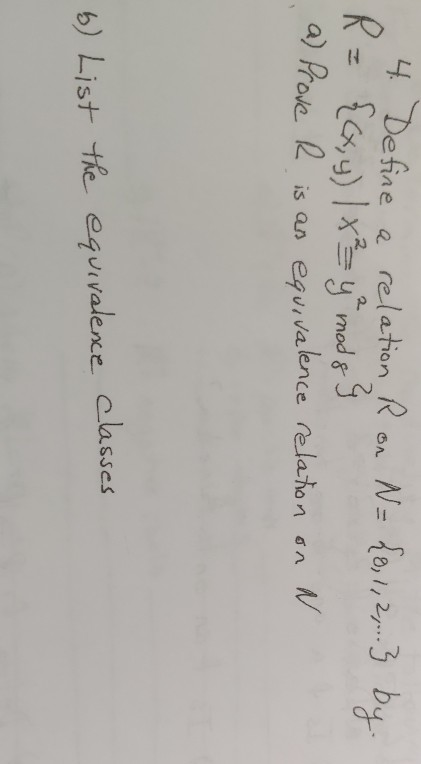 4. Define a relation R on N = {0,1,2,...} by.
R = {(x,y) | x² ≡ y² mod 8}
a) Prove R is an equivalence relation on N
b) List the equivalence classes